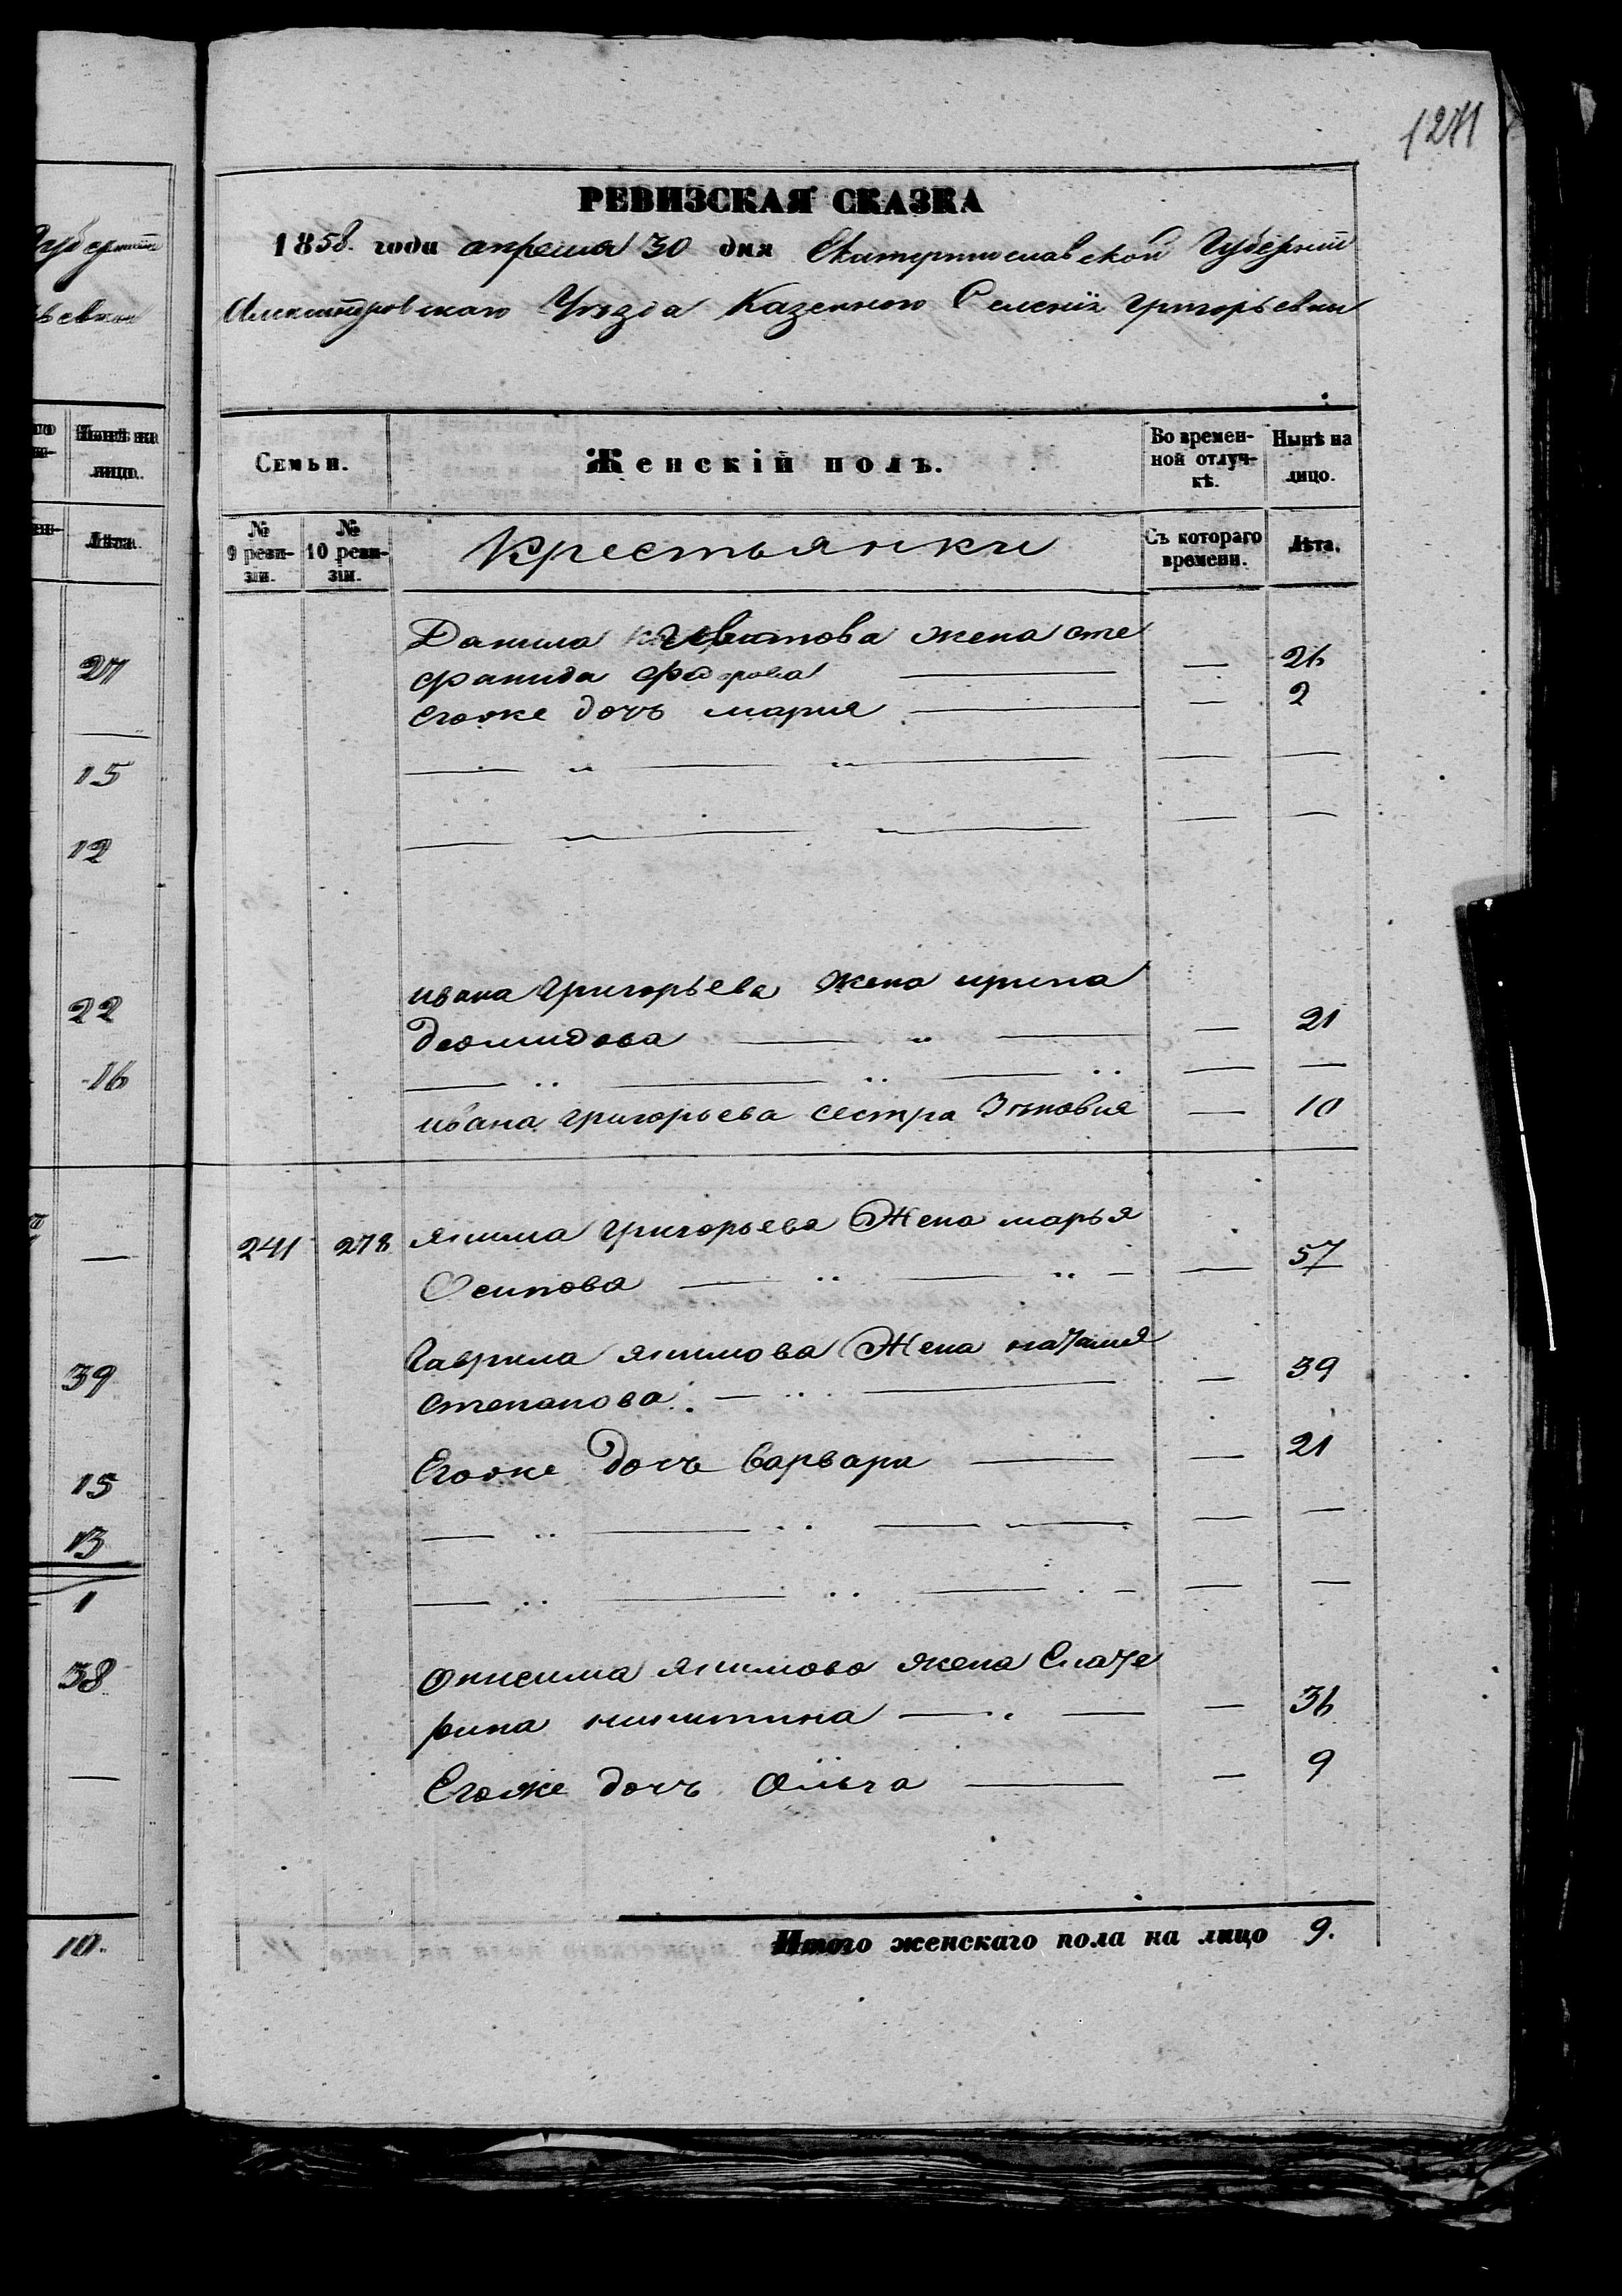 1271
РЕВИЗСКАЯ СКАЗКА
1858. года апреля 30 дня Екатеринославской Губернии
Александровскаго Уѣзда Казенного Селенія Григорьевки
Семьи.
Женскій полъ.
Во времен-
ной отлуч-
кѣ.
Нынѣ на
лицо.
№
9 реви-
зіи.
№
10 реви-
зіи.
Крестьянки
Съ котораго
времени.
Лѣта.
Данила жена сте
фанида Федорова — — 26
Егоже дочь мария — — 2
ивана Григорьева Жена ирина
Деомидова — — 21
ивана григорьева сестра Зѣновия — 10
241 278 якима григорьева Жена марья
Осипова — — 57
Гаврила якимова Жена наталия
степанова — — 39
Егоже Дочь варвара — — 21
Онисима якимова жена Екате
рина никитина — — 36
Егоже дочь Ольга — — 9
Итого женскаго пола на лицо 9.
Нынѣ на
лицо.
Лѣта.
27
15
12
22
16
39
15
13
1
38
10.